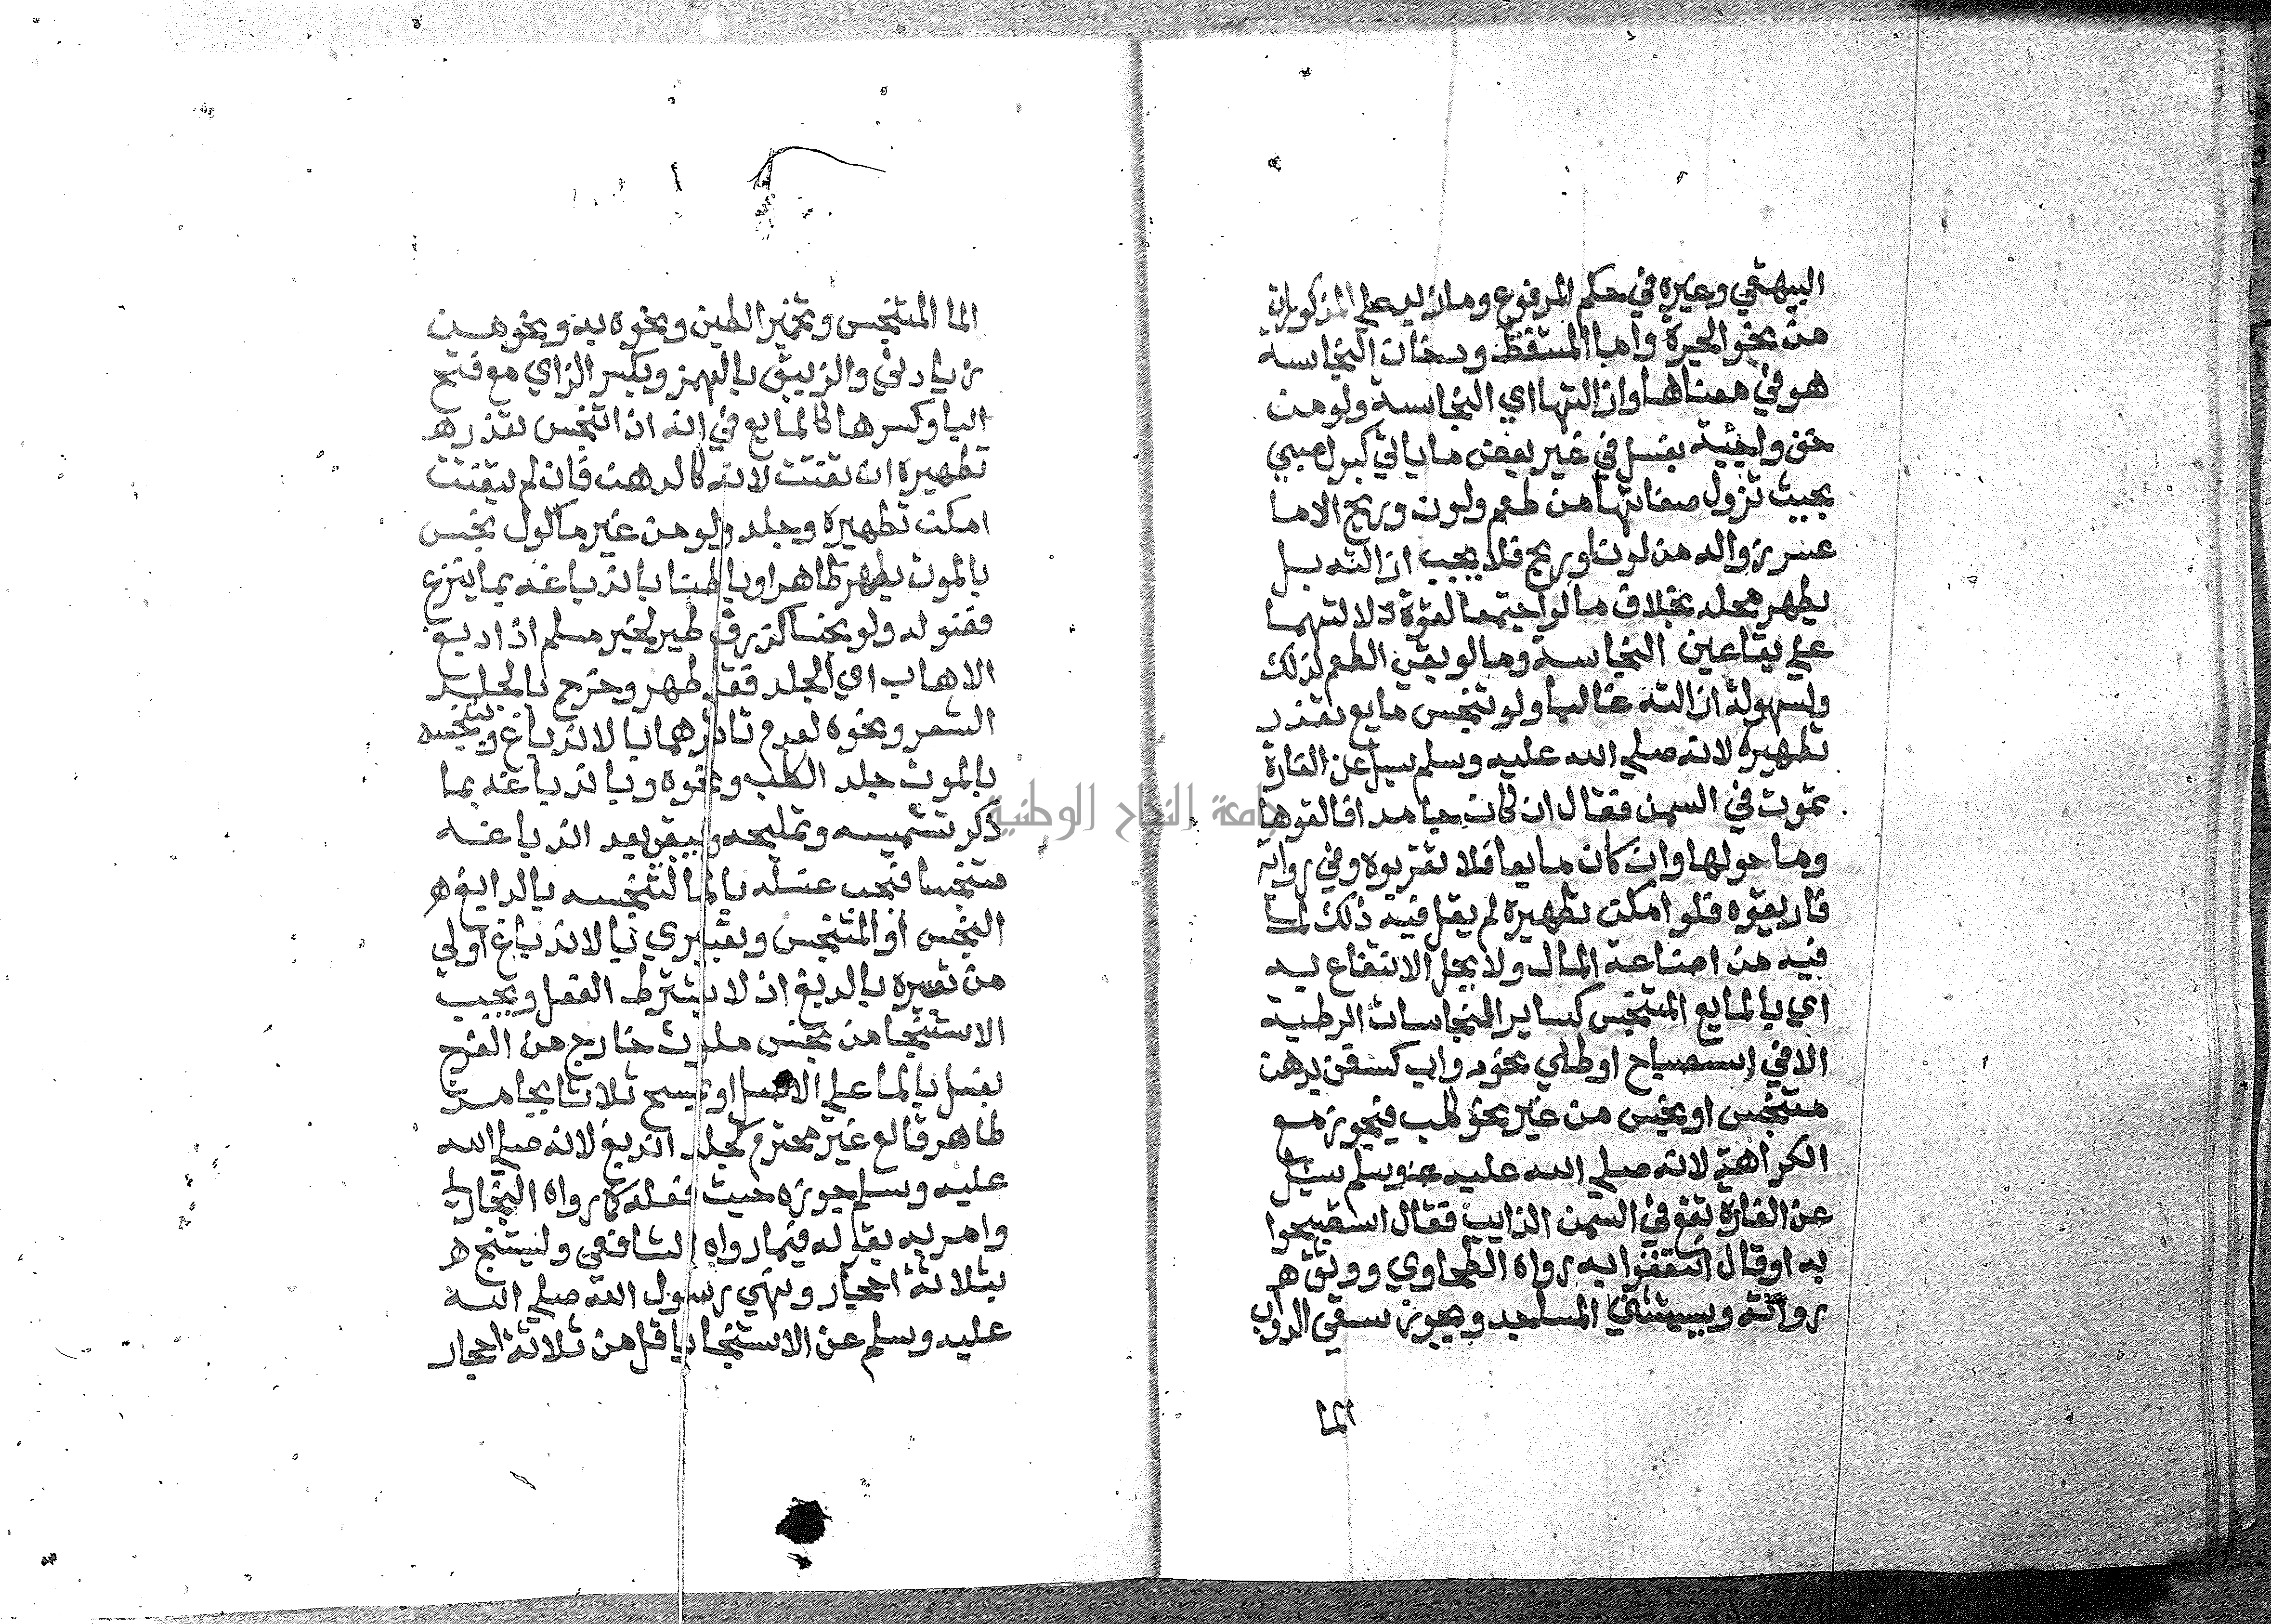 البيهقي وغيره في حكم المرفوع وما زيد علي المذكورات
من نحو الجرة وامبا المتقظ ودخان النجاسة
هو في معناها وازالتها اي النجاسة ولو من
خف واجبة بغسل في غير بعض ما ياتي كبول صبي
بحيث تزول صفاتها من طعم ولون وريح الا ما
عسر زواله من لون او ريح فلا يجب ازالته بل
يطهر محله بخلاف ما لو اجتمعا لقوة دلالتهما
علي بقا عين النجاسة وما لو بقي الطعم لذلك
ولسهولة ازالته غالبا ولو تنجس مايع تعذر
تطهيره لانه صلي الله عليه وسلم سيل عن الفارة
تموت في السمن فقال ان كان جامدا فالقوها
وما حولها وان كان مايعا فلا تقربوه وفي رواية
فاريقوه فلو امكن تطهيره لم يقل فيه ذلك لما
فيه من اضاعة المال ولا يحل الانتفاع به
اي بالمايع المتنجس كساير النجاسات الرطبة
الا في استصباح او طلي نحو دواب كسفن بدهن
متنجس او نجس من غير نحو كلب فيجوز مع
الكراهة لانه صلي الله عليه وسلم سيل
عن الفارة تقع في السمن الذايب فقال استصبحوا
به او قال انتفعوا به رواه الطحاوي ووثق ه
رواته ويستثني المساجد ويجوز سقي الدواب
الما
الما المتنجس وتخمير الطين ونحوه به ونحو من
زيادتي والزيبق بالهمز وبكسر الزاي مع فتح
اليا وكسرها كالمايع في انه ان التنجس تعذر ه
تطهيره ان تفتت لانه كالدهن فان لم يتفتت
امكن تطهيره وجلد ولو من غير ماكول نجس
بالموت يطهر ظاهرا وباطنا باندباغه بما ينزع
فضوله ولو نجسا كذرق طير لخبر مسلم اذا دبغ
الاهاب اي الجلد فقد طهر وخرج بالجلد
الشعر ونحوه لعدم تاثرهما بالاندباغ وبتنجسه
بالموت جلد الكلب ونحوه وباندباغه بما
ذكر تشميسه وتمليحه ويبقي بعد اندباغه
متنجسا فيجب غسله بالما لتنجسه بالدابغ ه
النجس او المتنجس وتعبيري بالاندباغ اولي
من تعبيره بالدبغ اذ لا يشترط الفعل ويجب
الاستنجا من نجس ملوث خارج من الفرج
بغسل بالما علي الاصل او بمسح ثلاثا بجامد
طاهر قالع غير محترم كجلد اندبغ لانه صلي الله
عليه وسلم جوزه حيث فعله كما رواه البخاري
وامر به بقوله فيما رواه الشافعي وليستنج ه
بثلاثة احجار ونهي رسول الله صلي الله
عليه وسلم عن الاستنجا باقل من ثلاثة احجار
جامعة النجاح الوطنية